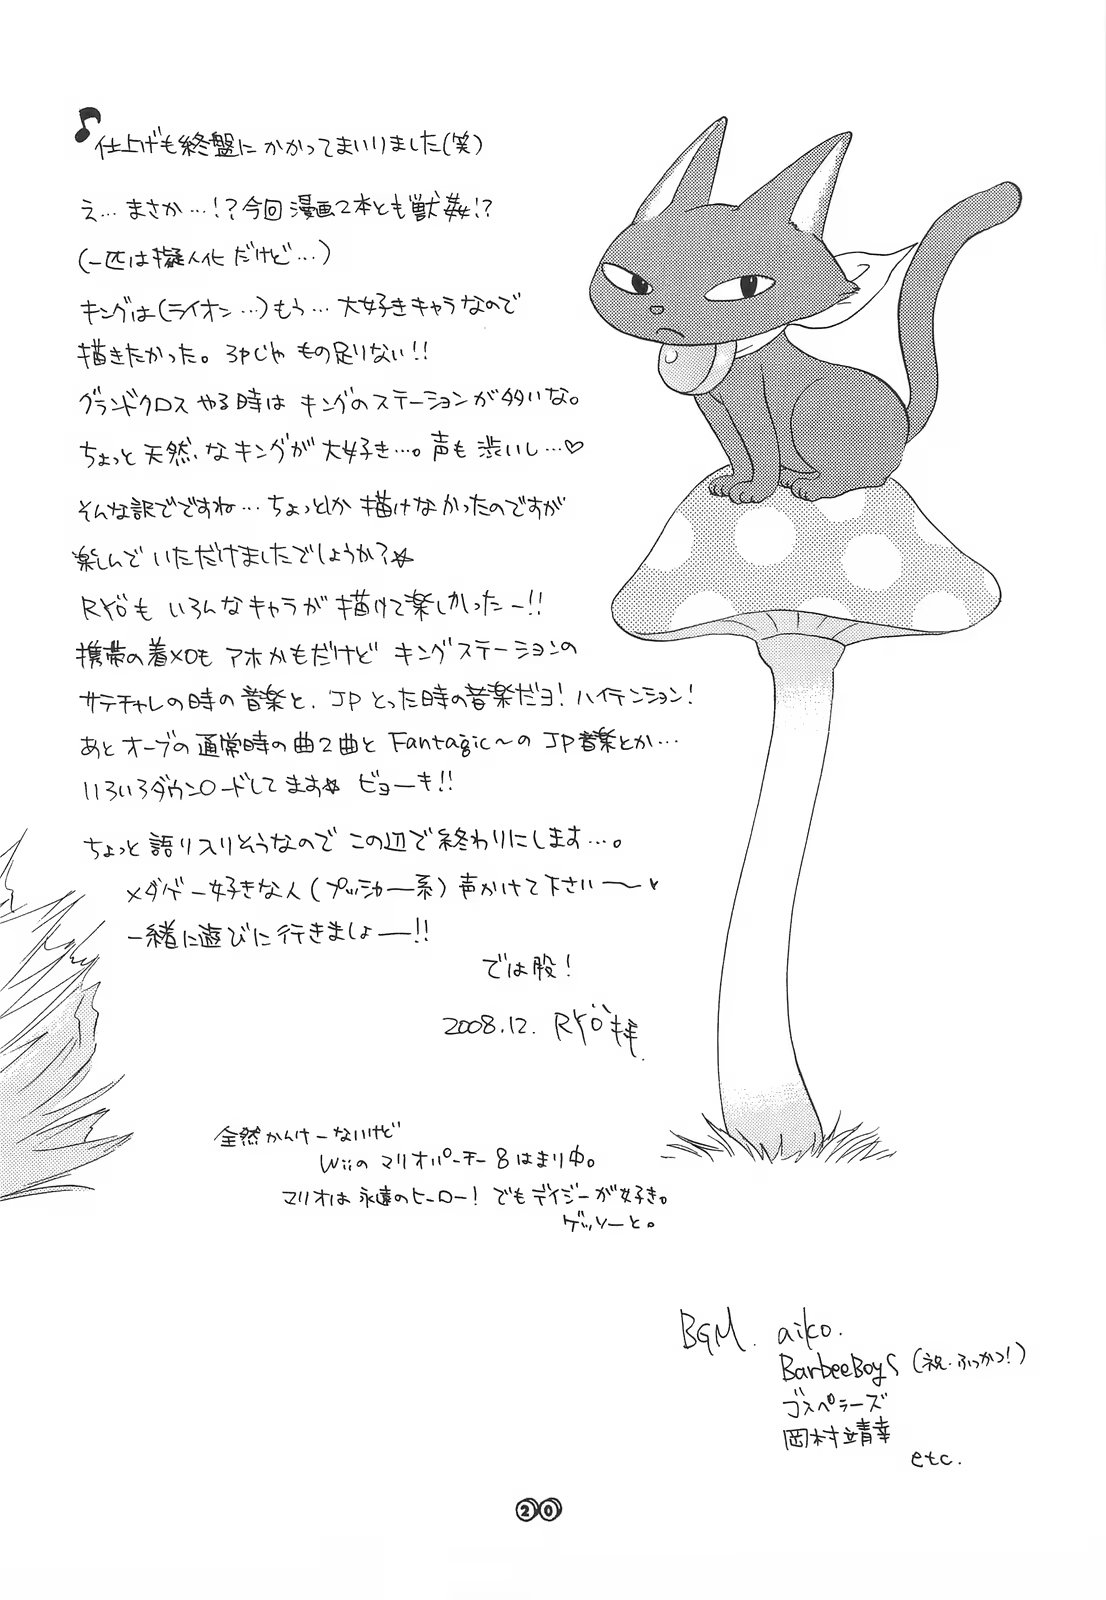 仕上げも終盤にかかってまいりました(笑)
え…まさか…!?今回漫画2本とも獣姦!?
(一匹は擬人化だけど…)
キングは(ライオン…)もう…大好きキャラなので
描きたかった。3Pじゃもの足りない!!
グランドクロスやる時はキングのステーションが多いな。
ちょっと天然なキングが大好き…。声も渋いし…♡
そんな訳でですね…ちょっとしか描けなかったのですが
楽しんでいただけましたでしょうか?☆
RYÖもいろんなキャラが描けて楽しかったー!!
携帯の着メロもアホかもだけどキングステーションの
サテチャレの時の音楽と、JPとった時の音楽だヨ!ハイテンション!
あとオーブの通常時の曲2曲とFantagic〜のJP音楽とか…
いろいろダウンロードしてます☆ビョーキ!!
ちょっと語り入りそうなのでこの辺で終わりにします…。
メダゲー好きな人(プッシャー系)声かけて下さい〜♥
一緒に遊びに行きましょーー!!
では股!
2008.12. RYÖ拝
全然かんけーないけど
Wiiのマリオパーチー8はまり中。
マリオは永遠のヒーロー!でもデイジーが好き。
ゲッソーと。
BGM. aiko.
BarbeeBoyS(祝・ふっかつ!)
ゴスペラーズ
岡村靖幸
etc.
20